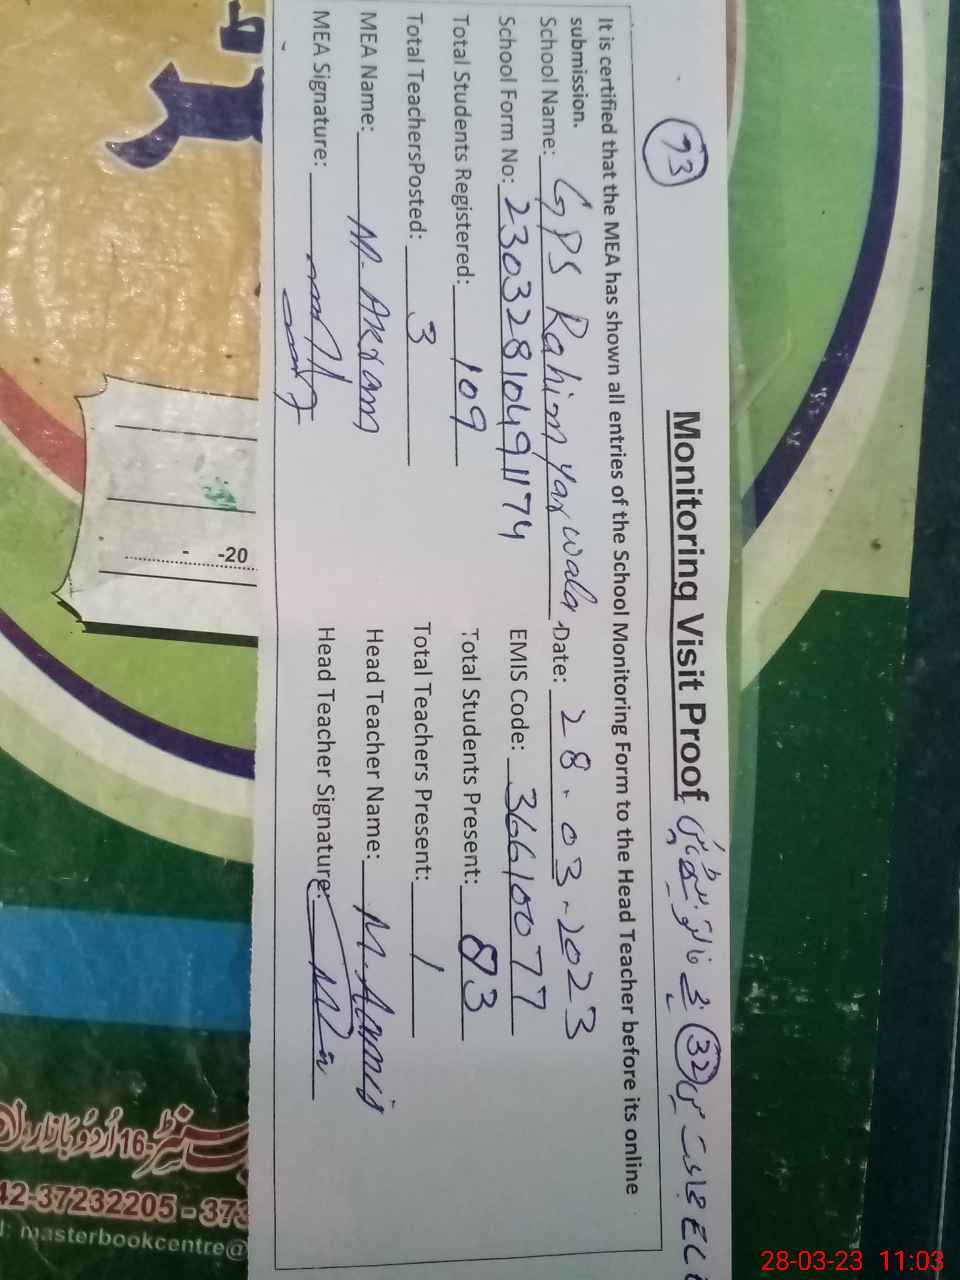 93
Monitoring Visit Proof
ECE جماعت میں 32 بچے
It is certified that the MEA has shown all entries of the School Monitoring Form to the Head Teacher before its online
submission.
School Name: GPS Rahim yar wala Date: 28.03-2023
School Form No: 23032810491174 EMIS Code: 36610077
Total Students Registered: 109 Total Students Present: 83
Total TeachersPosted: 3 Total Teachers Present: 1
MEA Name: M. Akram Head Teacher Name: M. Aamir
MEA Signature: Head Teacher Signature:
-20
16-اُردو بازار لا
42-37232205 - 373
l: masterbookcentre@
28-03-23 11:03